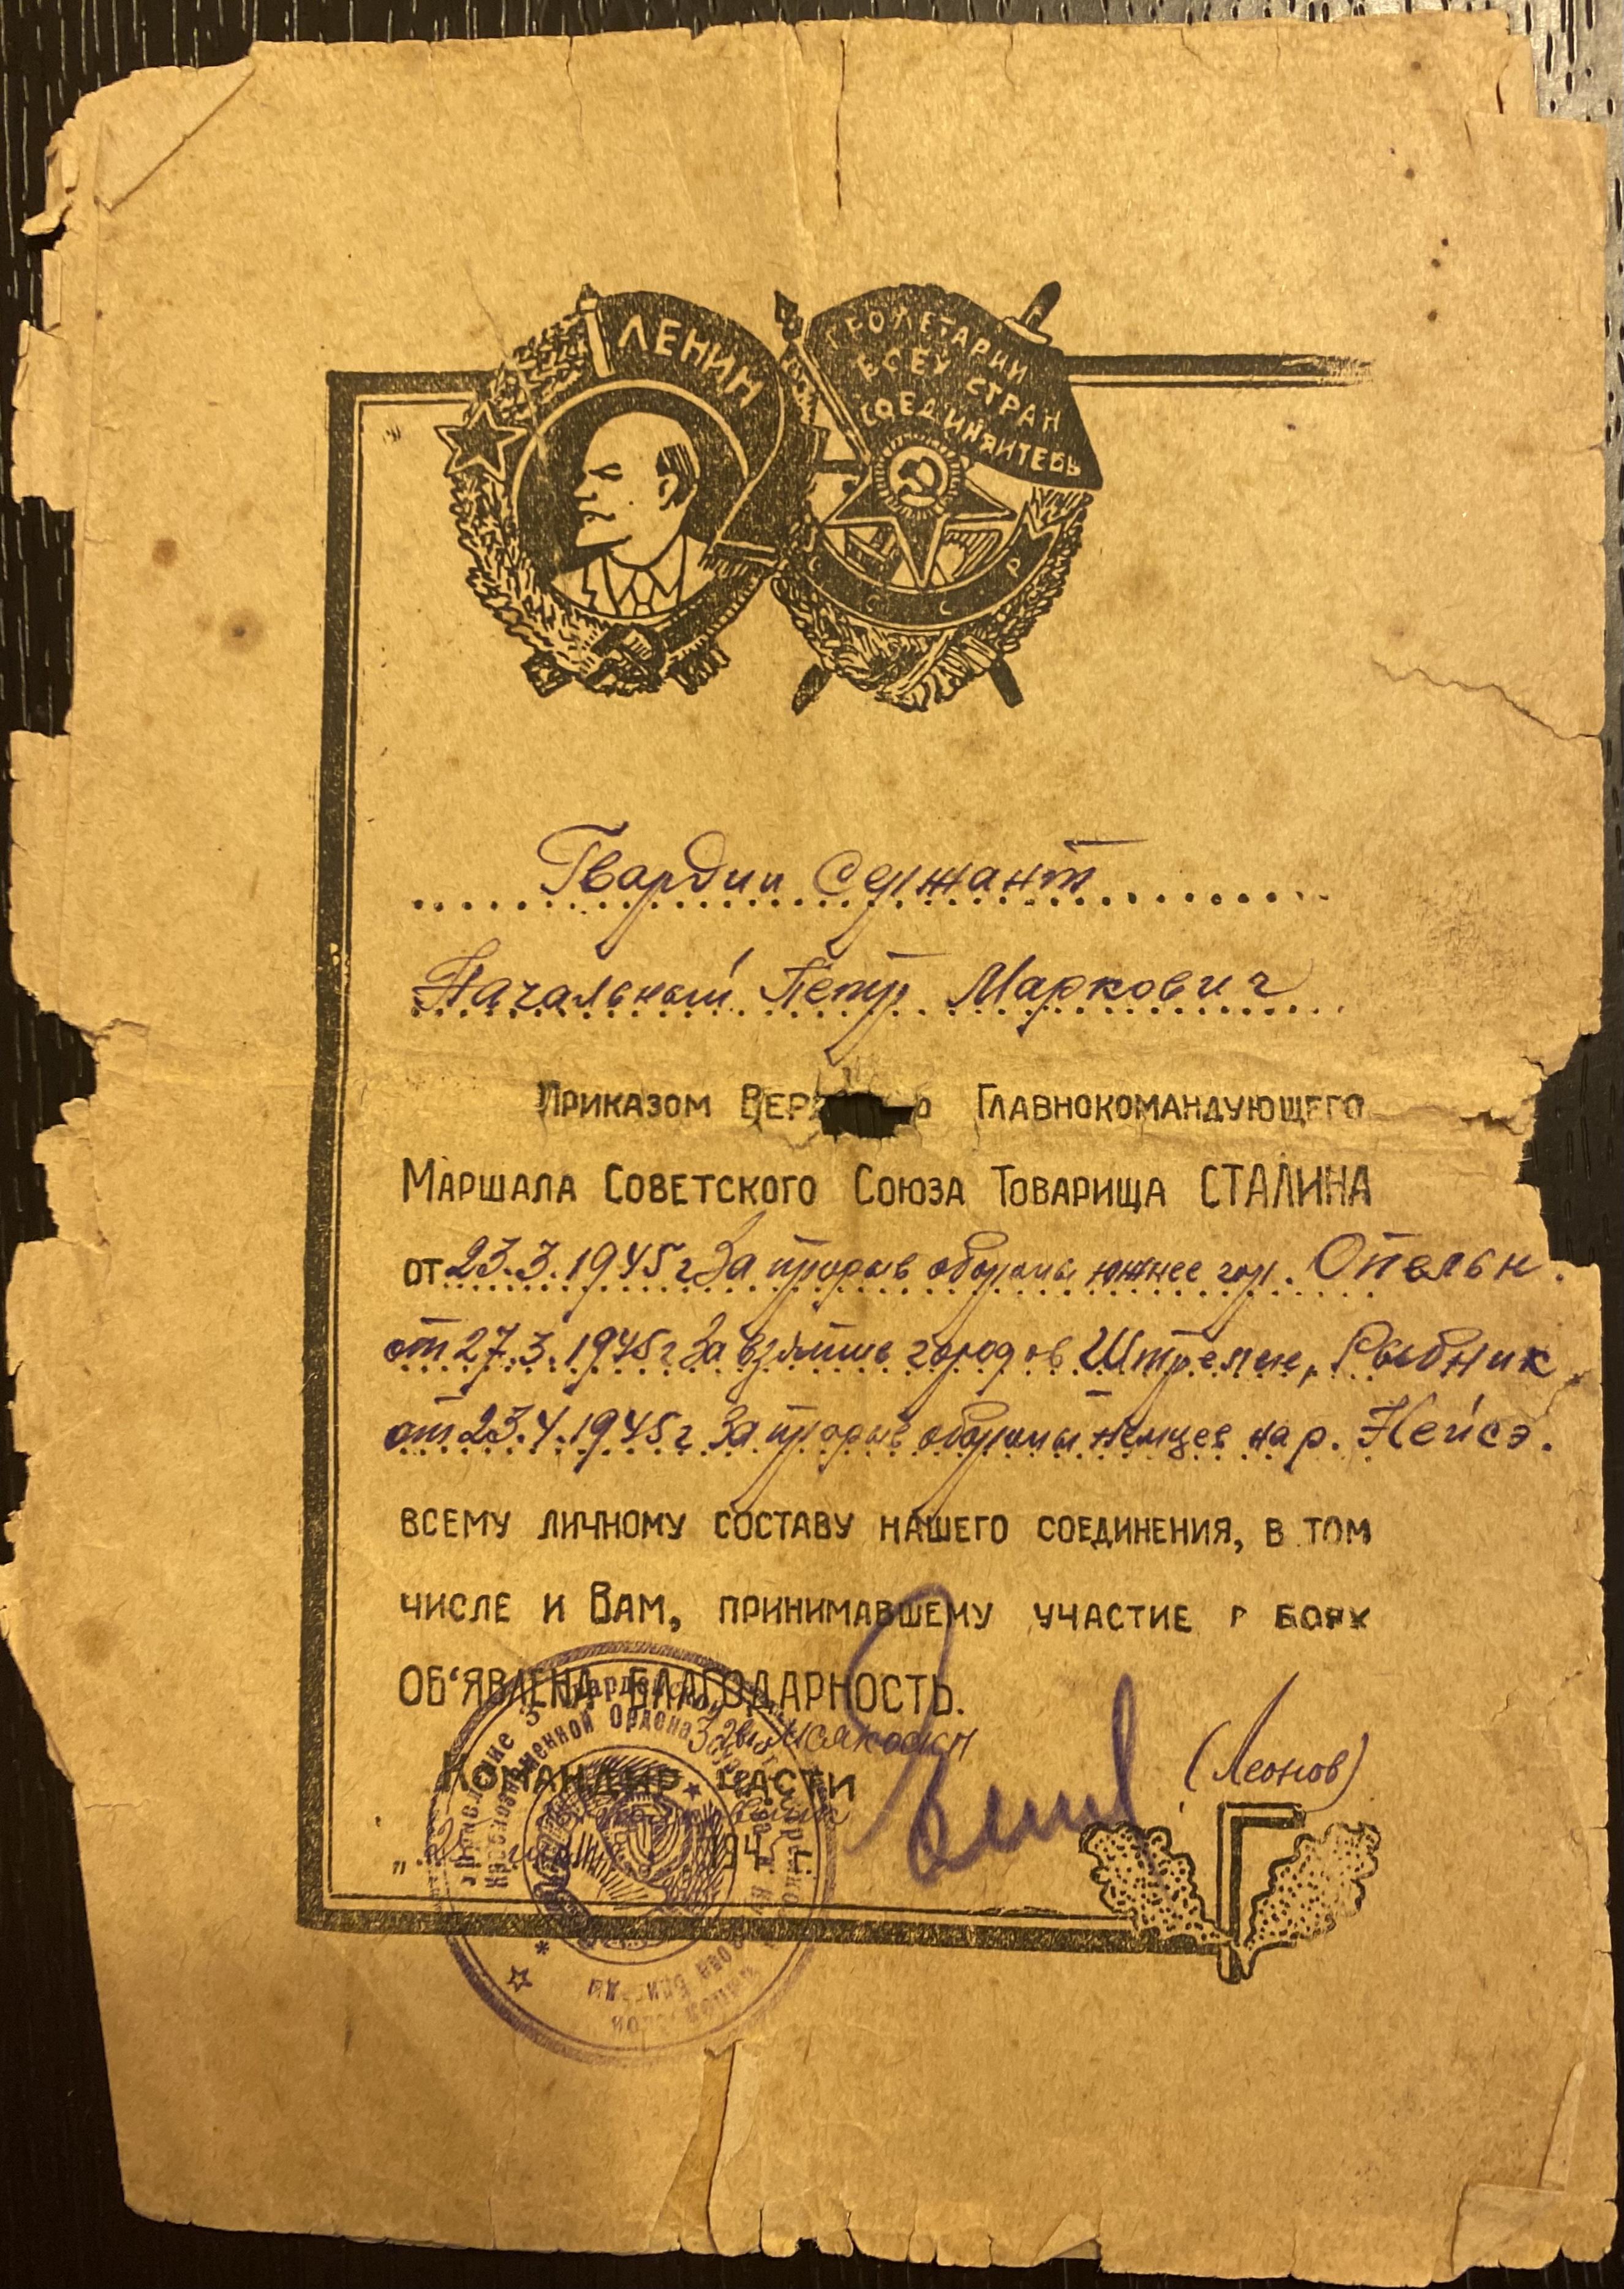 ЛЕНИН
ПРОЛЕТАРИИ
ВСЕХ СТРАН
СОЕДИНЯЙТЕСЬ
СССР
Гвардии Сержант
Начальный Петр Маркович
ПРИКАЗОМ ГЛАВНОКОМАНДУЮЩЕГО
МАРШАЛА СОВЕТСКОГО СОЮЗА ТОВАРИЩА СТАЛИНА
от 23.3.1945 г За прорыв обороны южнее гор. Опельн.
от 27.3.1945 г За взятие городов Штрелен, Рыбник,
от 23.4.1945 г За прорыв обороны немцев на р. Нейсэ.
ВСЕМУ ЛИЧНОМУ СОСТАВУ НАШЕГО СОЕДИНЕНИЯ, В ТОМ
ЧИСЛЕ И ВАМ, ПРИНИМАВШЕМУ УЧАСТИЕ В БОЯХ
ОБ'ЯВЛЕНА БЛАГОДАРНОСТЬ.
КОМАНДИР ЧАСТИ
(Леонов)